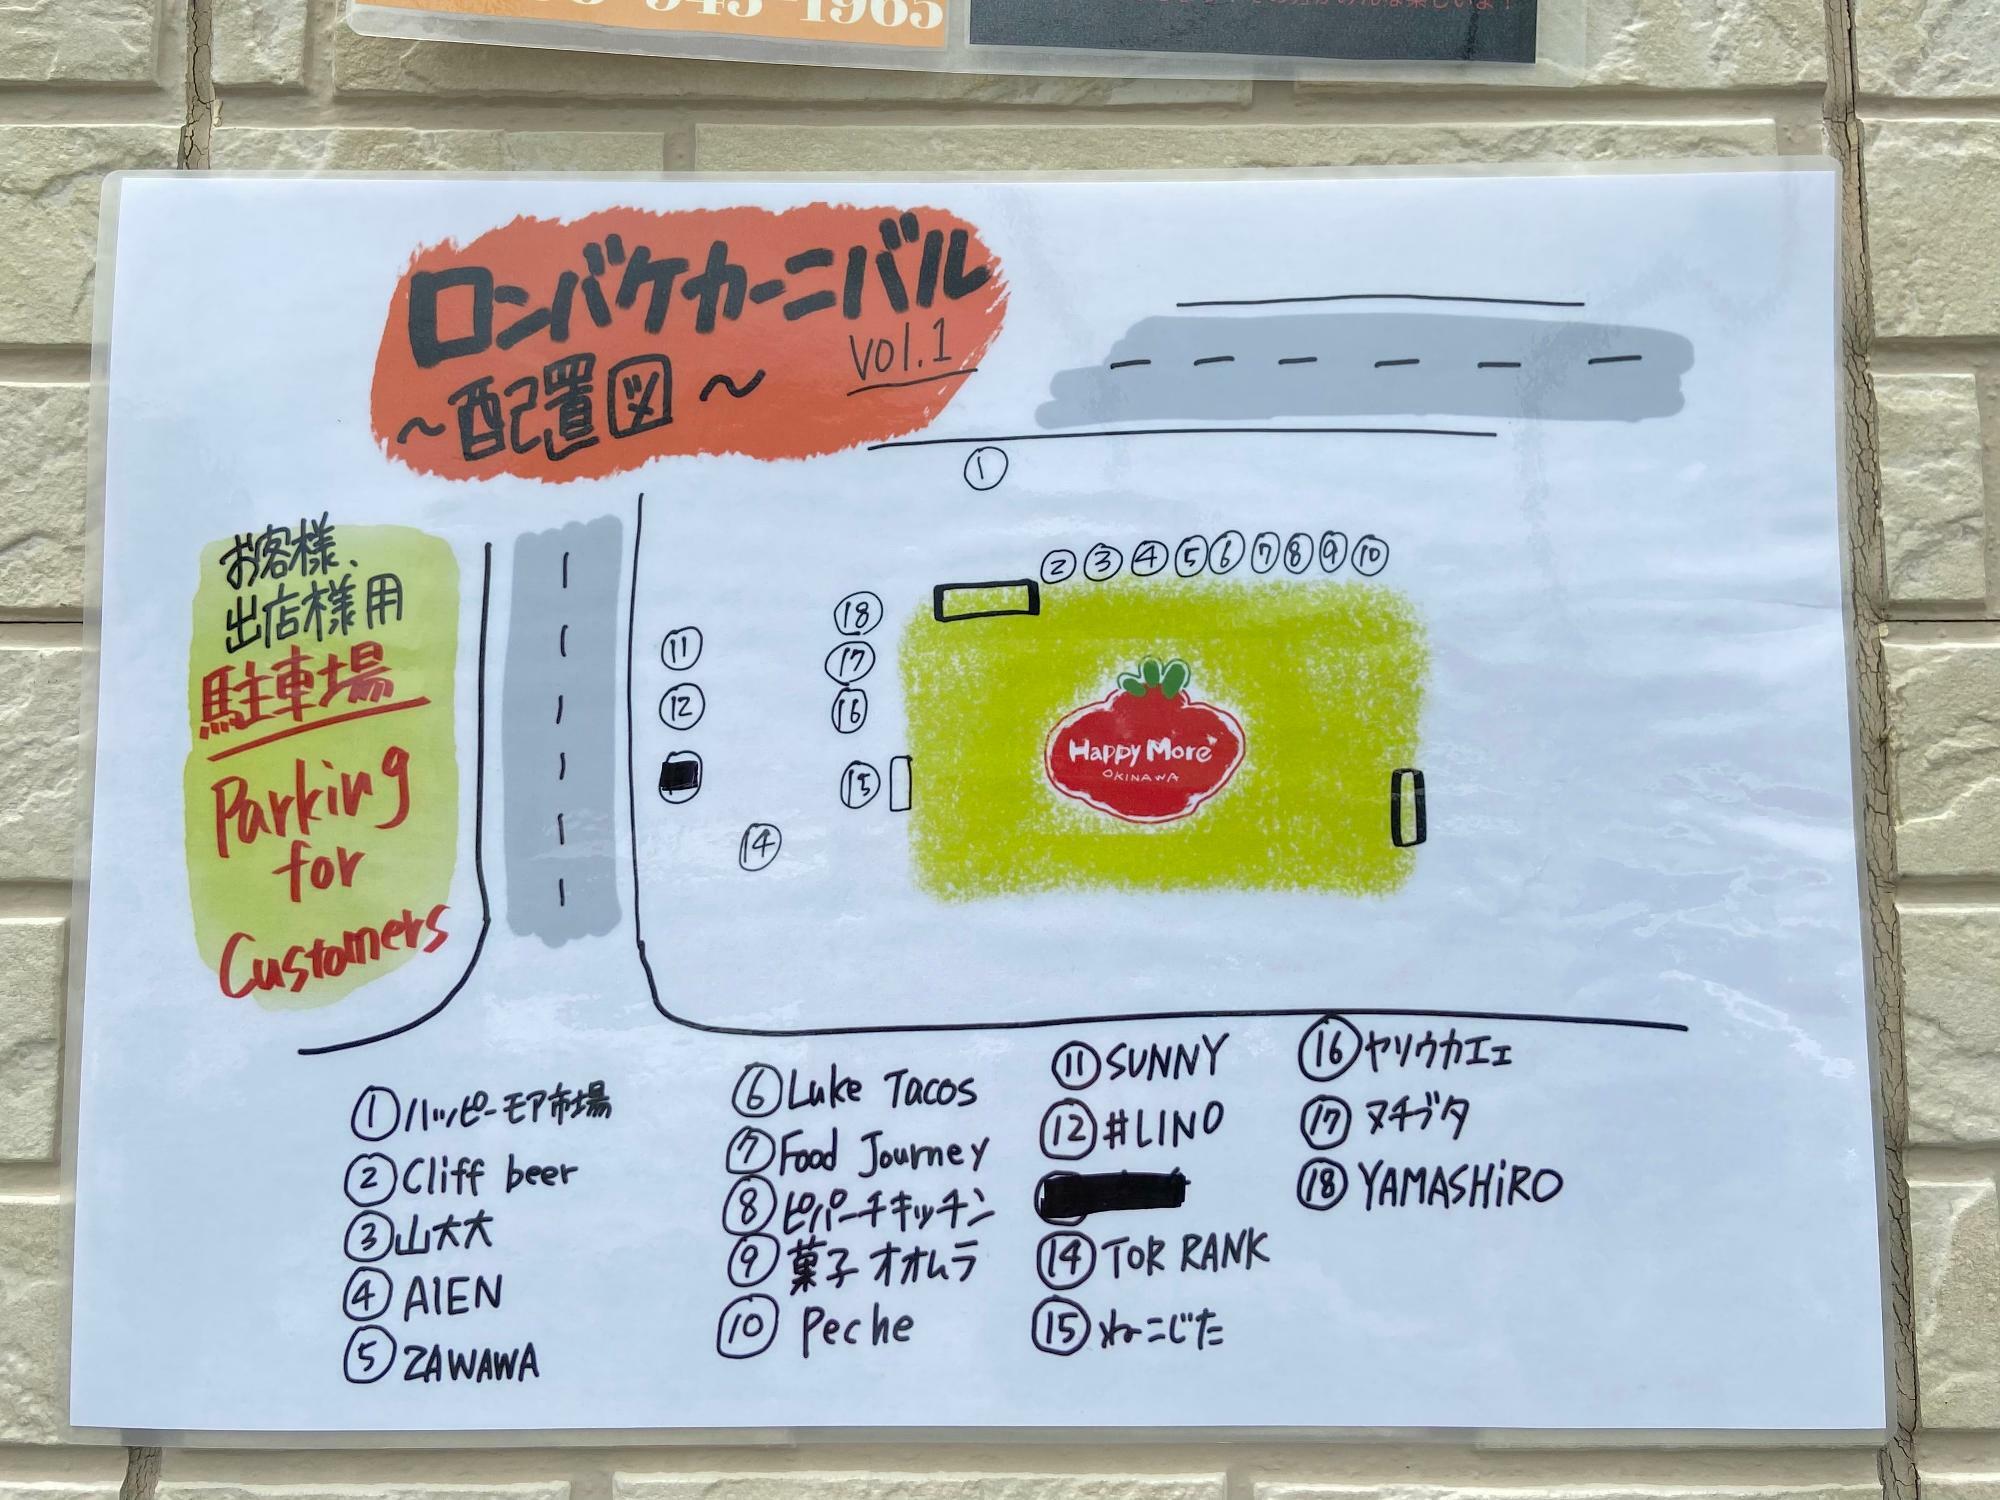 1965
ロンバケカーニバル
vol.1
～配置図～
お客様、
出店様用
駐車場
Parking
for
Customers
①
② ③ ④ ⑤ ⑥ ⑦ ⑧ ⑨ ⑩
⑱
⑪
⑰
⑫
⑯
⑮
⑭
Happy More
OKINAWA
①ハッピーモア市場
②Cliff beer
③山大大
④AIEN
⑤ZAWAWA
⑥Luke Tacos
⑦Food Journey
⑧ピパーチキッチン
⑨菓子オオムラ
⑩Peche
⑪SUNNY
⑫#LINO
⑭TOR RANK
⑮ねこじた
⑯ヤソウカエェ
⑰ヌチブタ
⑱YAMASHiRO